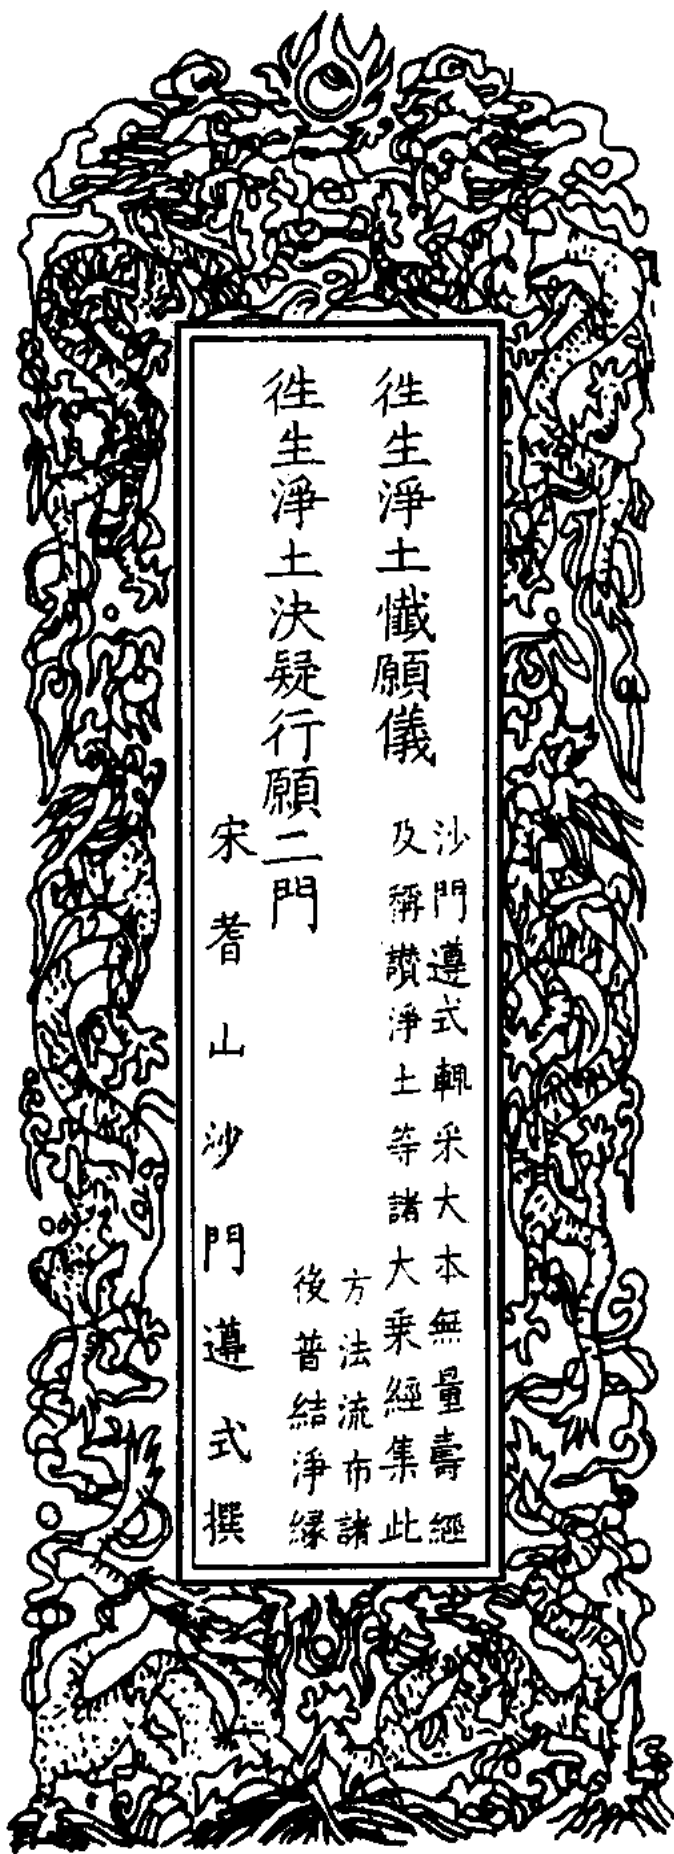 徃生淨土懺願儀
沙門遵式輙采大本無量壽經
及稱讃淨土等諸大乗經集此
方法流布諸
後普結淨縁
徃生淨土決疑行願二門
宋耆山沙門遵式撰